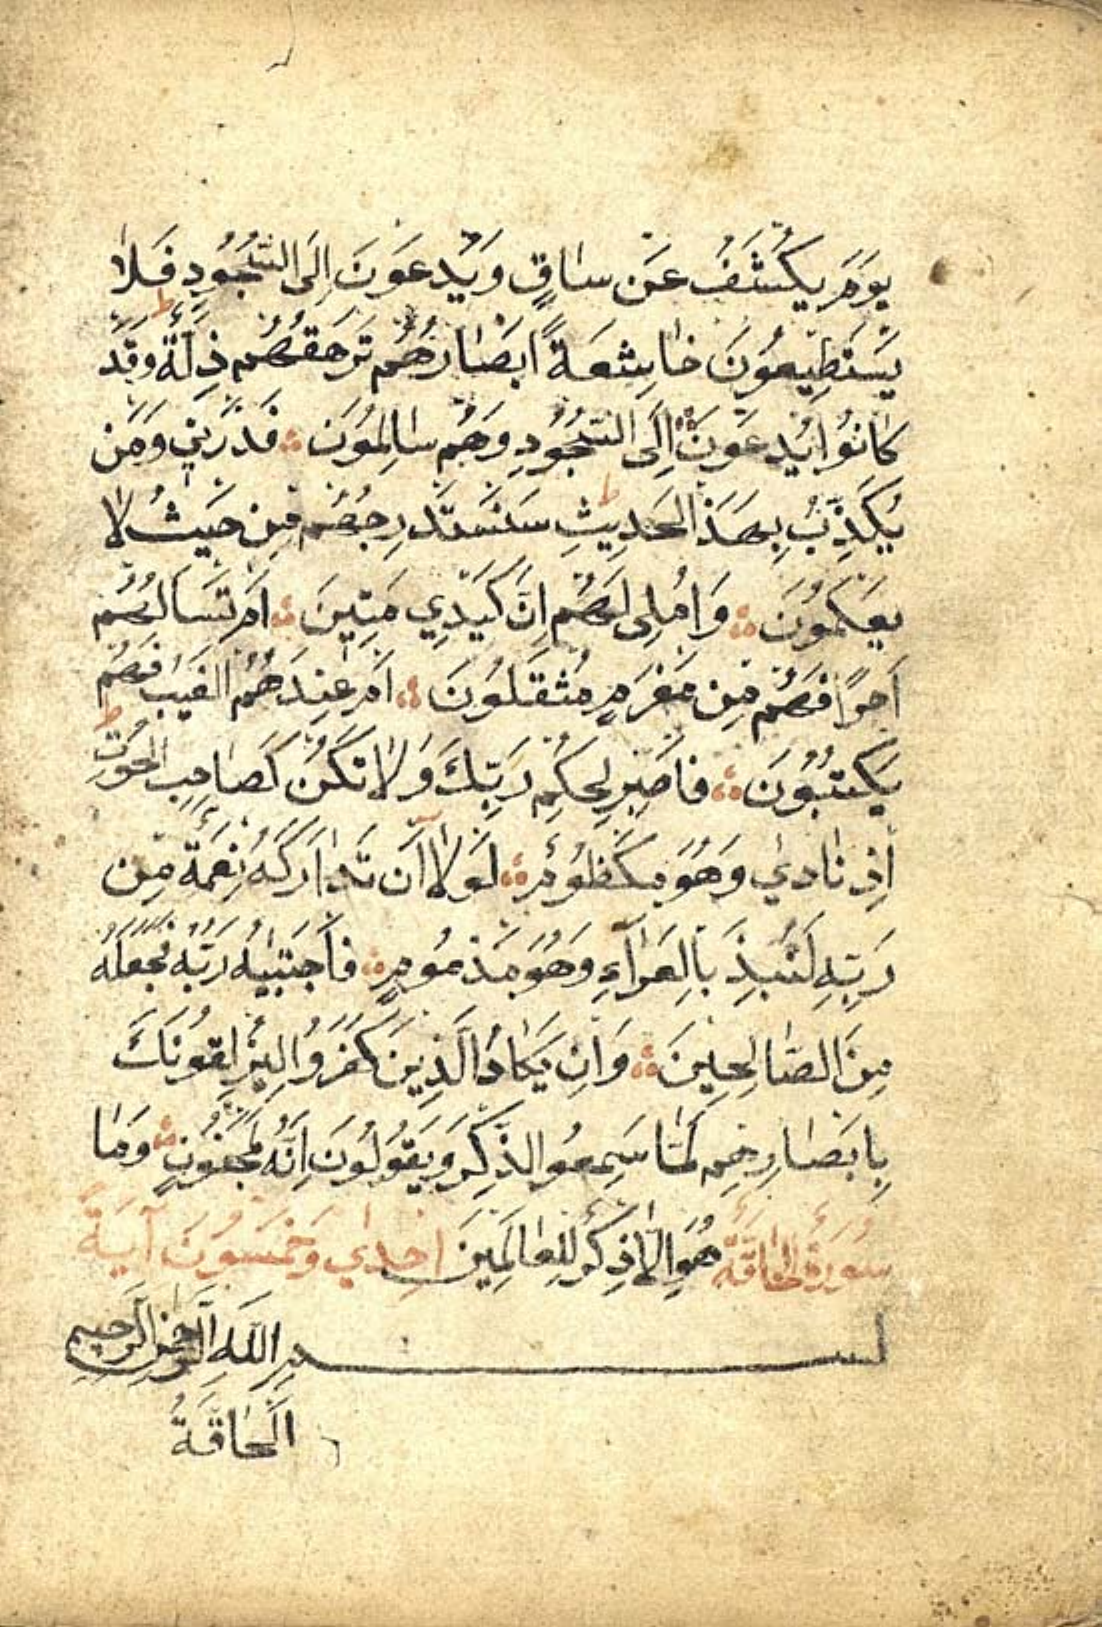 يَوْمَ يُكْشَفُ عَنْ سَاقٍ وَيُدْعَوْنَ إِلَى السُّجُودِ فَلَا
يَسْتَطِيعُونَ خَاشِعَةً اَبْصَارُهُمْ تَرْهَقُهُمْ ذِلَّةٌ وَقَدْ
كَانُوا يُدْعَوْنَ إِلَى السُّجُودِ وَهُمْ سَالِمُونَ ؞ فَذَرْنِي وَمَنْ
يُكَذِّبُ بِهَذَا الْحَدِيثِ ط سَنَسْتَدْرِجُهُمْ مِنْ حَيْثُ لَا
يَعْلَمُونَ ؞ وَاُمْلِى لَهُمْ اِنَّ كَيْدِي مَتِينٌ ؞ اَمْ تَسْاَلُهُمْ
اَجْرًا فَهُمْ مِنْ مَغْرَمٍ مُثْقَلُونَ ؞ اَمْ عِنْدَهُمُ الْغَيْبُ فَهُمْ
يَكْتُبُونَ ؞ فَاصْبِرْ لِحُكْمِ رَبِّكَ وَلَا تَكُنْ كَصَاحِبِ الْحُوتِ ط
اِذْ نَادٰي وَهُوَ مَكْظُومٌ ؞ لَوْلَا اَنْ تَدَارَكَهُ نِعْمَةٌ مِنْ
رَبِّهِ لَنُبِذَ بِالْعَرَآءِ وَهُوَ مَذْمُومٌ ؞ فَاجْتَبٰيهُ رَبُّهُ فَجَعَلَهُ
مِنَ الصَّالِحِينَ ؞ وَاِنْ يَكَادُ الَّذِينَ كَفَرُوا لَيُزْلِقُونَكَ
بِاَبْصَارِهِمْ لَمَّا سَمِعُوا الذِّكْرَ وَيَقُولُونَ اِنَّهُ لَمَجْنُونٌ ؞ وَمَا
سُورَةُ الْحَاقَّةِ هُوَ اِلَّا ذِكْرٌ لِلْعَالَمِينَ اِحْدٰي وَخَمْسُونَ آيَةً
بسم اللهِ الرَّحْمٰنِ الرَّحِيمِ
اَلْحَاقَّةُ